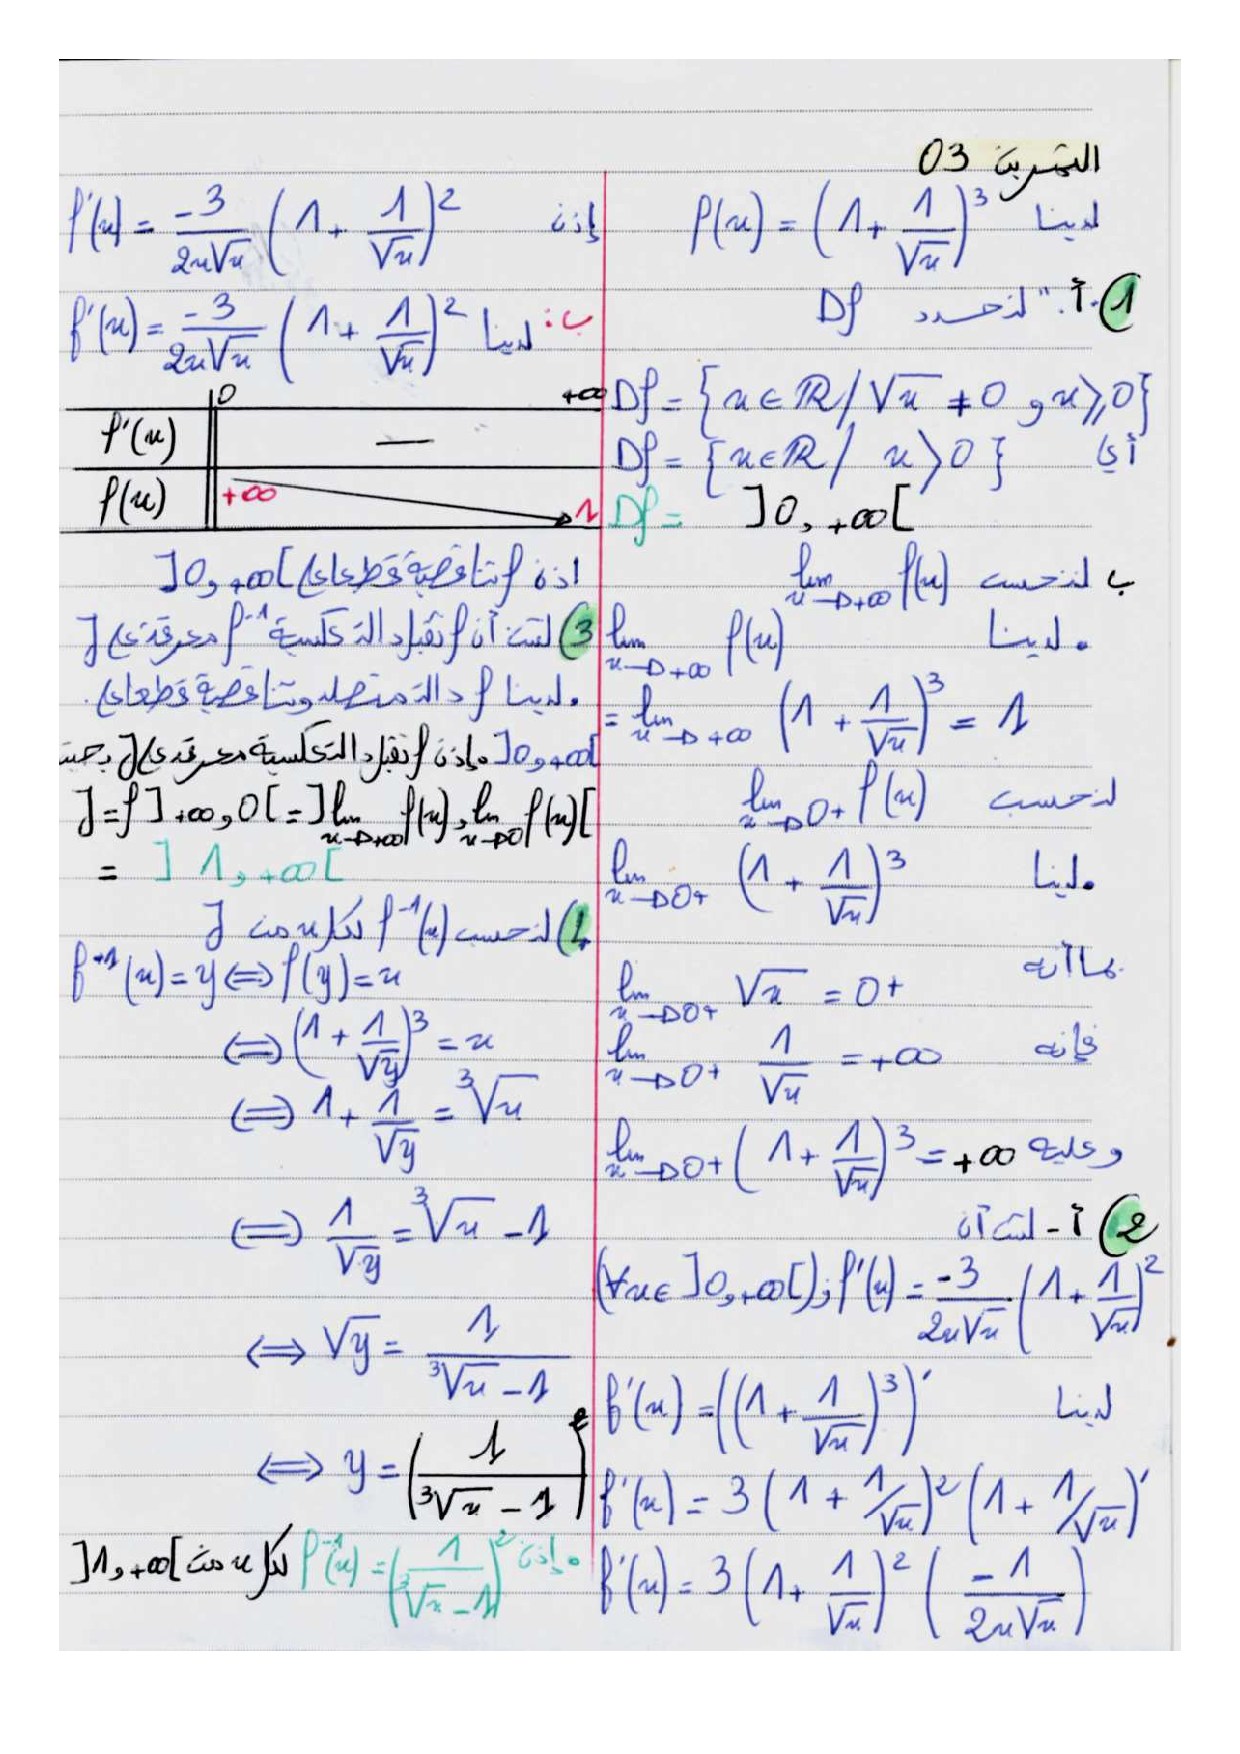 التمرين 03
لدينا f(x) = (1 + 1/√x)^3
1) أ. لنحدد Df
Df = {x ∈ ℝ / √x ≠ 0 و x ≥ 0}
أي Df = {x ∈ ℝ / x > 0}
Df = ]0, +∞[
ب لنحسب lim x→+∞ f(x)
• لدينا lim x→+∞ f(x)
= lim x→+∞ (1 + 1/√x)^3 = 1
لنحسب lim x→0+ f(x)
• لدينا lim x→0+ (1 + 1/√x)^3
بما أنه lim x→0+ √x = 0+
فإنه lim x→0+ 1/√x = +∞
وعليه lim x→0+ (1 + 1/√x)^3 = +∞
2) أ - لنثبت أن
(∀x ∈ ]0, +∞[); f'(x) = -3/(2x√x) (1 + 1/√x)^2
لدينا f'(x) = ((1 + 1/√x)^3)'
f'(x) = 3(1 + 1/√x)^2 (1 + 1/√x)'
f'(x) = 3(1 + 1/√x)^2 (-1/(2x√x))
إذن f'(x) = -3/(2x√x) (1 + 1/√x)^2
ب: لدينا f'(x) = -3/(2x√x) (1 + 1/√x)^2
0 +∞
f'(x) —
f(x) +∞ 1
اذن f تناقصية قطعا على ]0, +∞[
3) لنثبت أن f تقبل دالة عكسية f^-1 معرفة على J
• لدينا f دالة متصلة وتناقصية قطعا على
]0, +∞[ • إذن f تقبل دالة عكسية معرفة على J بحيث
J = f ]+∞, 0[ = ]lim x→+∞ f(x), lim x→0 f(x)[
= ]1, +∞[
4) لنحسب f^-1(x) لكل x من J
f^-1(x) = y ⟺ f(y) = x
⟺ (1 + 1/√y)^3 = x
⟺ 1 + 1/√y = ∛x
⟺ 1/√y = ∛x - 1
⟺ √y = 1/(∛x - 1)
⟺ y = (1/(∛x - 1))^2
• إذن f^-1(x) = (1/(∛x - 1))^2 لكل x من ]1, +∞[